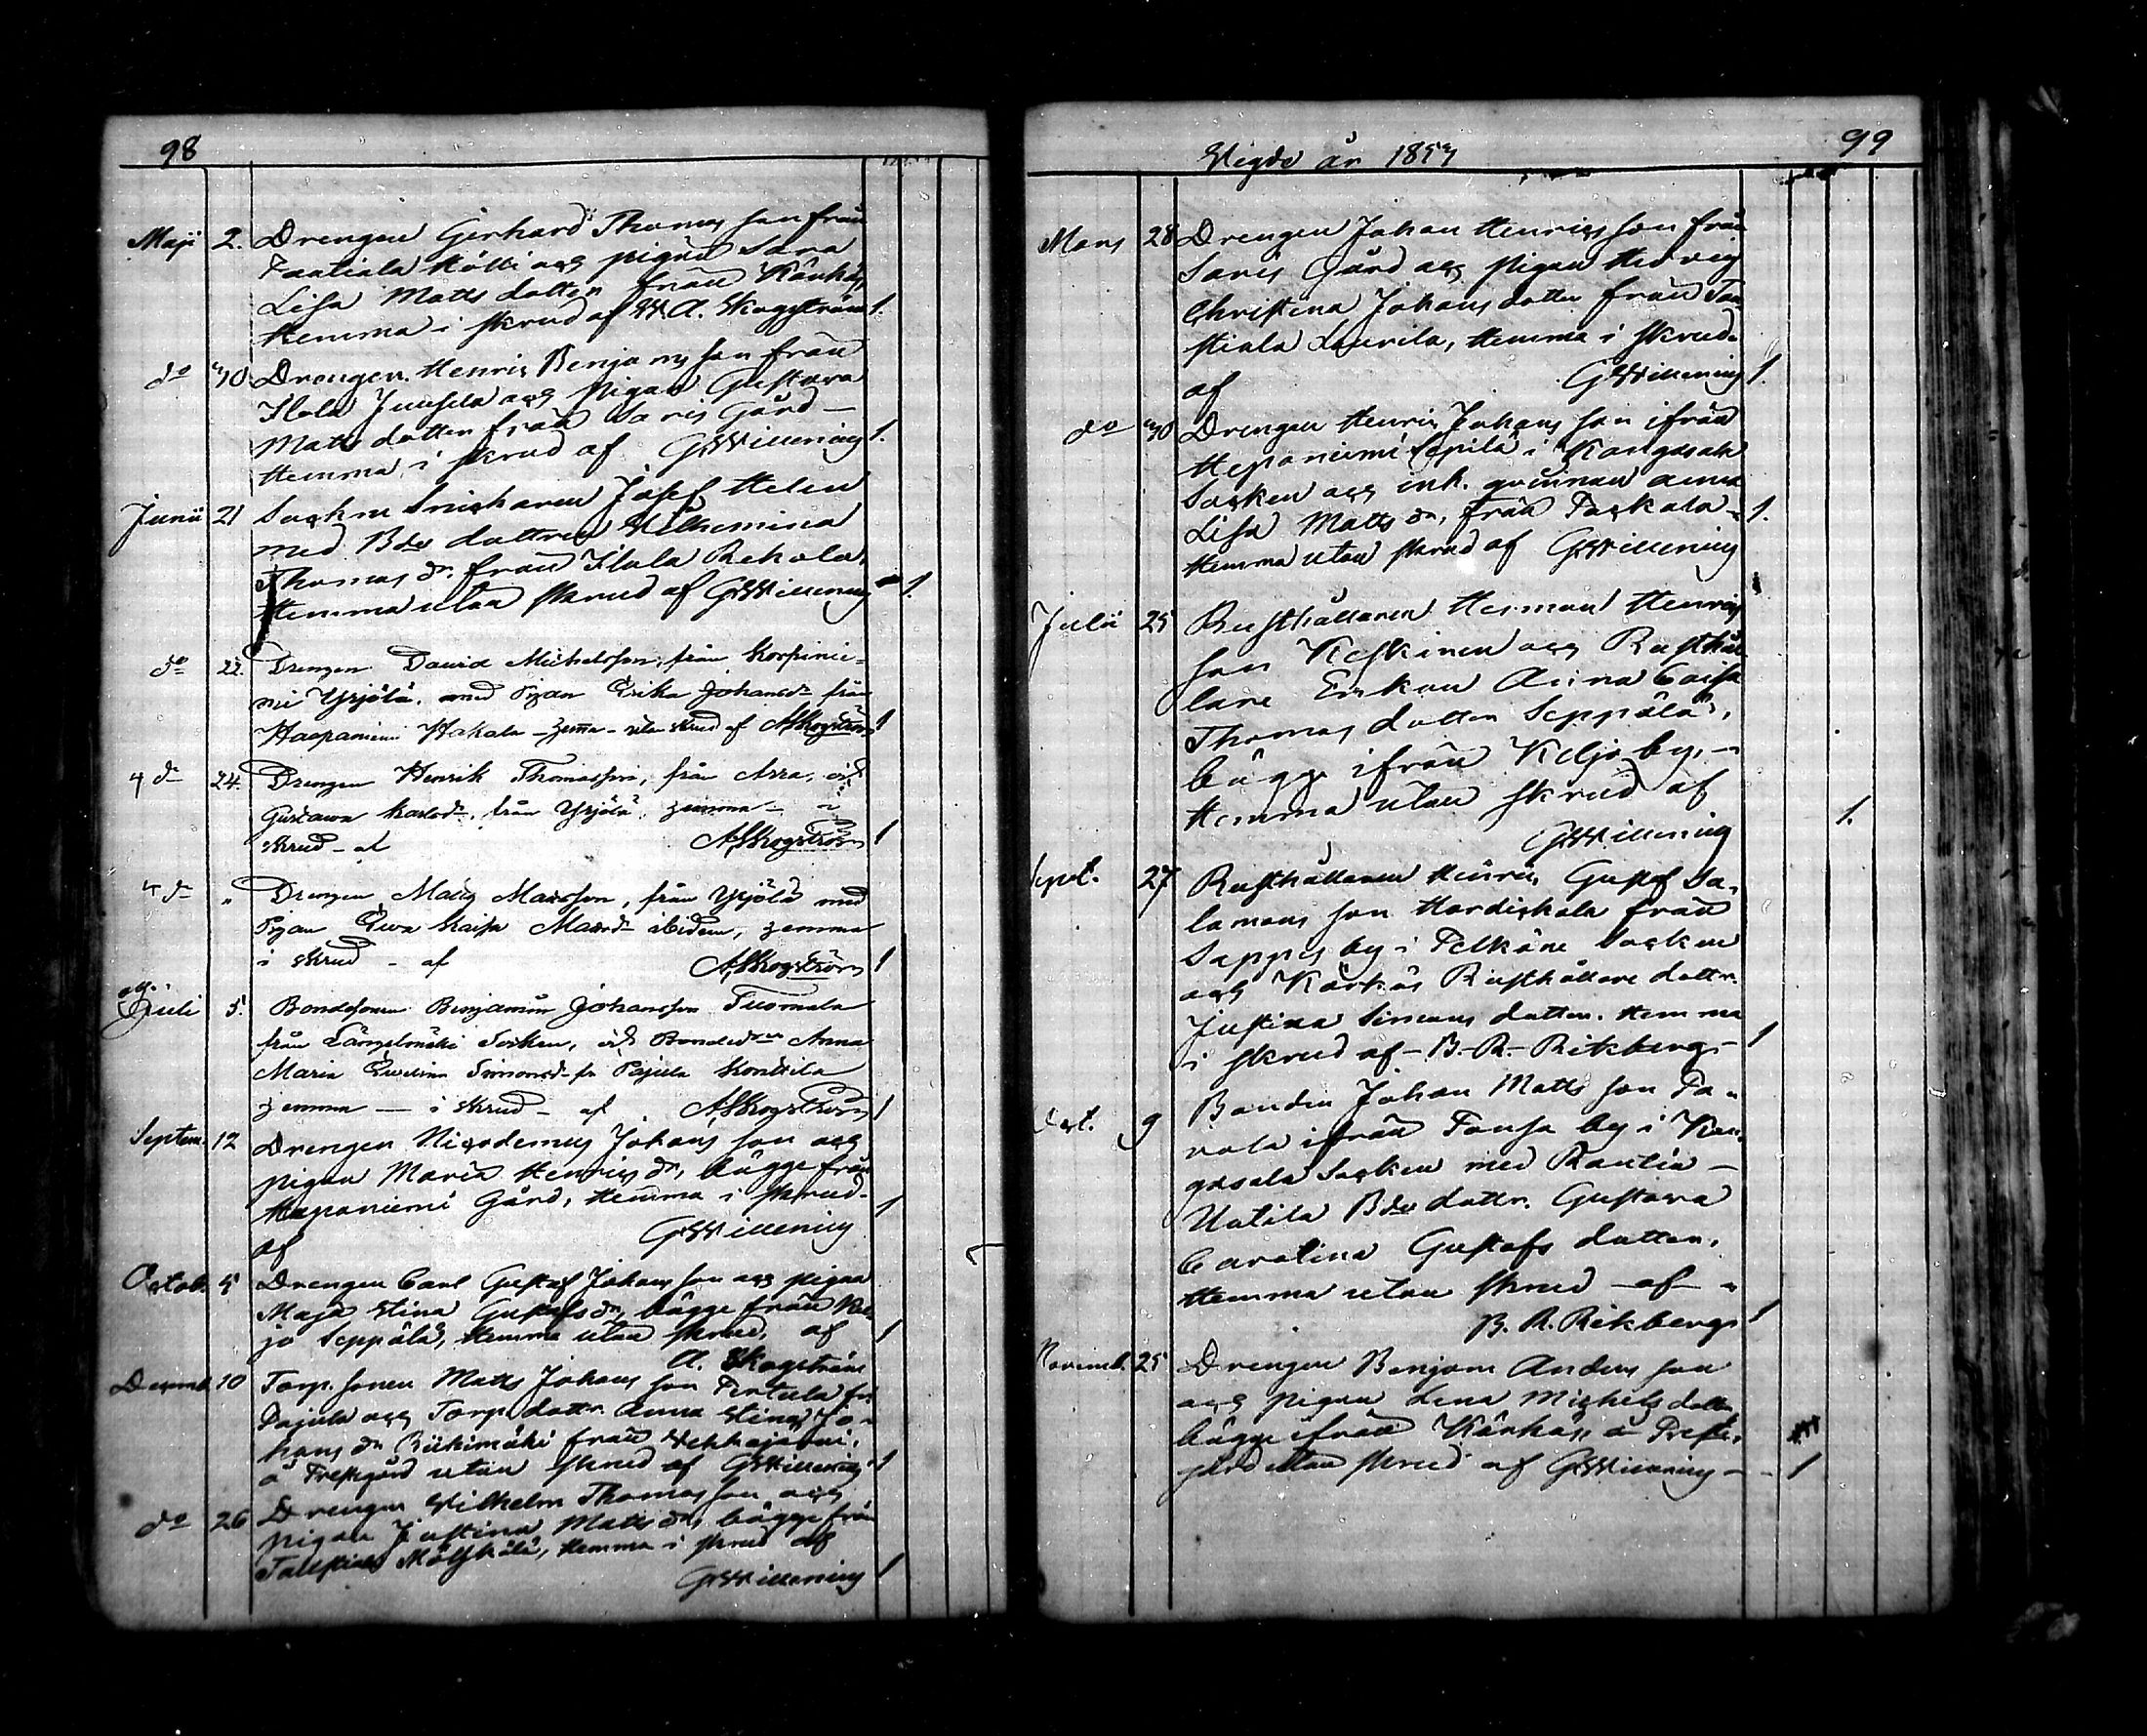 98
Maji 2. Drengen Gerhard Thomas son från
Taatiala Kölli och pigan Sara
Lisa Matts dotter från
Hemma i skrud af A. Skogström 1.
do 30 Drengen Henric Benja ms son från
Ilola Juusela och pigan Gustava
Matts dotter från Saris Gård
Hemma i skrud af GWillening 1.
Junii 21 Sockne Snickaren Josef Helin
med Bde dottren Wilhemina
Thomas dr. från Ilola Rekola,
Hemma utan skrud af GWillening 1.
do 22. Drengen David Michelsson, från Korpinie-
mi Yrjölä, med Pigan Erika Johansdr från
Haapaniemi Hakala hemma utan skrud af ASkogström 1
4 dr 24. Drengen Henrik Thomasson, från Arra, och
Gustava Karlsdr. från Yrjölä, hemma
skrud af ASkogström 1
4 dr " Drengen Matts Mattsson, från Yrjölä med
Pigan Ewa Kaisa Mattsdr ibidem, hemma
i skrud af ASkogström 1
Juli 5. Bondesonen Benjamin Johansson Tuomala
från Längelmäki Socken, och Bondedr Anna
Maria Ewelina Simonsdr fr Pajula Konttila
hemma i skrud af ASkogström 1
Septem. 12 Drengen Nicodemus Johans son och
pigan Maria Henrics dr, bägge från
Haponiemi Gård, Hemma i skrud
af GWillening 1
Octob. 5 Drengen Carl Gustaf Johans son och pigan
Maja Stina Gustafs dr, bägge från Kel-
jo Seppälä, Hemma utan skrud, af 1
A. Skogström
Decemb. 10 Torp. sonen Matts Johans son Pentula fr.
Pajula och Torp. dottr. Anna Stina Jo-
hans dr Riihimäki från Vehkajärvi,
å Prestgård utan skrud af GWillening 1
do 26 Drengen Wilhelm Thomas son och
pigan Justina Matts dr, bägge från
Hemma i skrud af
GWillening 1
Vigde år 1857 99
Mars 28 Drengen Johan Henrics son från
Saris Gård och Pigan Hedvig
Christina Johans dotter från Taa-
stiala Laurila, Hemma i skrud
af GWillening 1.
do 30 Drengen Henric Johans son ifrån
Heponiemi Sepilä i Kangasala
Socken och inh. qvinnan Anna
Lisa Matts dr, från Packala 1.
Hemma utan skrud af GWillening
Julii 25 Rusthållaren Herman Henrics
son Keskinen och Rusthål-
lare Enkan Anna Caisa
Thomas dotter Seppälä,
bägge ifrån Keljo by,
Hemma utan skrud af
GWillening 1.
Sept. 27 Rusthållaren Henric Gustaf Sa-
lomons son från
Sappes by i Pelkäne Socken
och Kärkäs Rusthållare dottr.
Justina Simons dotter. Hemma
i skrud af B. R. Rikberg 1
Oct. 9 Bonden Johan Matts son Pa-
vola ifrån Tonsa by i Kan-
gasala Socken med Rautia
Uotila Bde dottr. Gustava
Carolina Gustafs dotter,
Hemma utan skrud af
B. R. Rikberg 1
Novemb. 25 Drengen Benjam Anders son
och pigan Lena Michels dotter
bägge ifrån å Prest-
gård utan skrud af GWillening 1